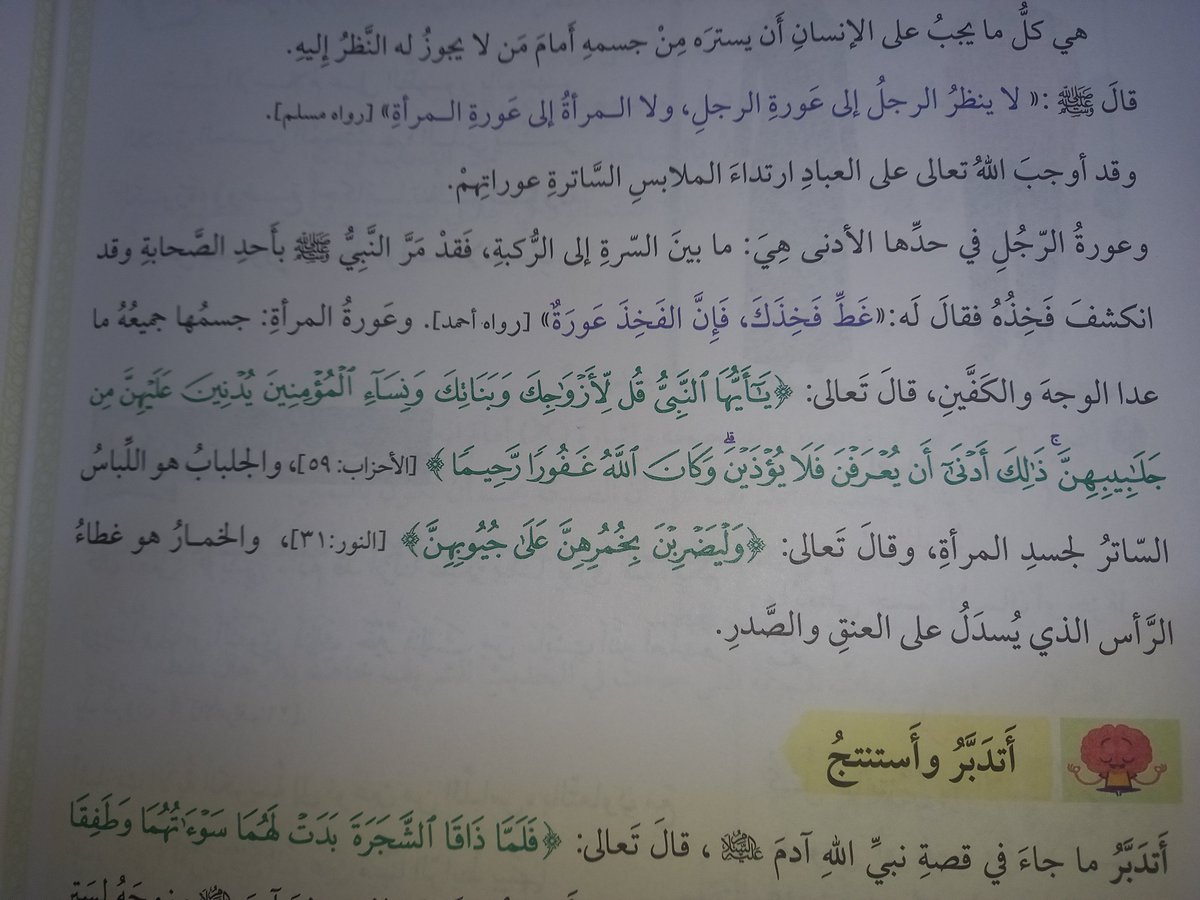 هي كلُّ ما يجبُ على الإنسانِ أَن يسترَه مِنْ جسمهِ أَمامَ مَن لا يجوزُ له النَّظرُ إِليهِ.
قالَ ﷺ :« لا ينظرُ الرجلُ إلى عَورةِ الرجلِ، ولا الـمرأةُ إلى عَورةِ الـمرأةِ» [رواه مسلم].
وقد أوجبَ اللهُ تعالى على العبادِ ارتداءَ الملابسِ السَّاترةِ عوراتِهمْ.
وعورةُ الرّجُلِ في حدِّها الأدنى هِيَ: ما بينَ السّرةِ إلى الرُّكبةِ، فَقدْ مَرَّ النَّبِيُّ ﷺ بأَحدِ الصَّحابةِ وقد
انكشفَ فَخِذُهُ فقالَ لَه:«غَطِّ فَخِذَكَ، فَإِنَّ الفَخِذَ عَورَةٌ» [رواه أحمد]. وعَورةُ المرأةِ: جسمُها جميعُهُ ما
عدا الوجهَ والكَفَّينِ، قالَ تَعالى: ﴿يَـٰٓأَيُّهَا ٱلنَّبِىُّ قُل لِّأَزْوَٰجِكَ وَبَنَاتِكَ وَنِسَآءِ ٱلْمُؤْمِنِينَ يُدْنِينَ عَلَيْهِنَّ مِن
جَلَـٰبِيبِهِنَّ ۚ ذَٰلِكَ أَدْنَىٰٓ أَن يُعْرَفْنَ فَلَا يُؤْذَيْنَ ۗ وَكَانَ ٱللَّهُ غَفُورًا رَّحِيمًا ﴾ [الأحزاب: ٥٩]، والجلبابُ هو اللِّباسُ
السّاترُ لجسدِ المرأةِ، وقالَ تَعالى: ﴿وَلْيَضْرِبْنَ بِخُمُرِهِنَّ عَلَىٰ جُيُوبِهِنَّ﴾ [النور:٣١]، والخمـارُ هو غطاءُ
الرَّأس الذي يُسدَلُ على العنقِ والصَّدرِ.
أَتدَبَّرُ وأَستنتجُ
أَتدَبَّرُ ما جاءَ في قصةِ نبيِّ اللهِ آدمَ عليه السلام ، قالَ تَعالى: ﴿فَلَمَّا ذَاقَا ٱلشَّجَرَةَ بَدَتْ لَهُمَا سَوْءَٰتُهُمَا وَطَفِقَا